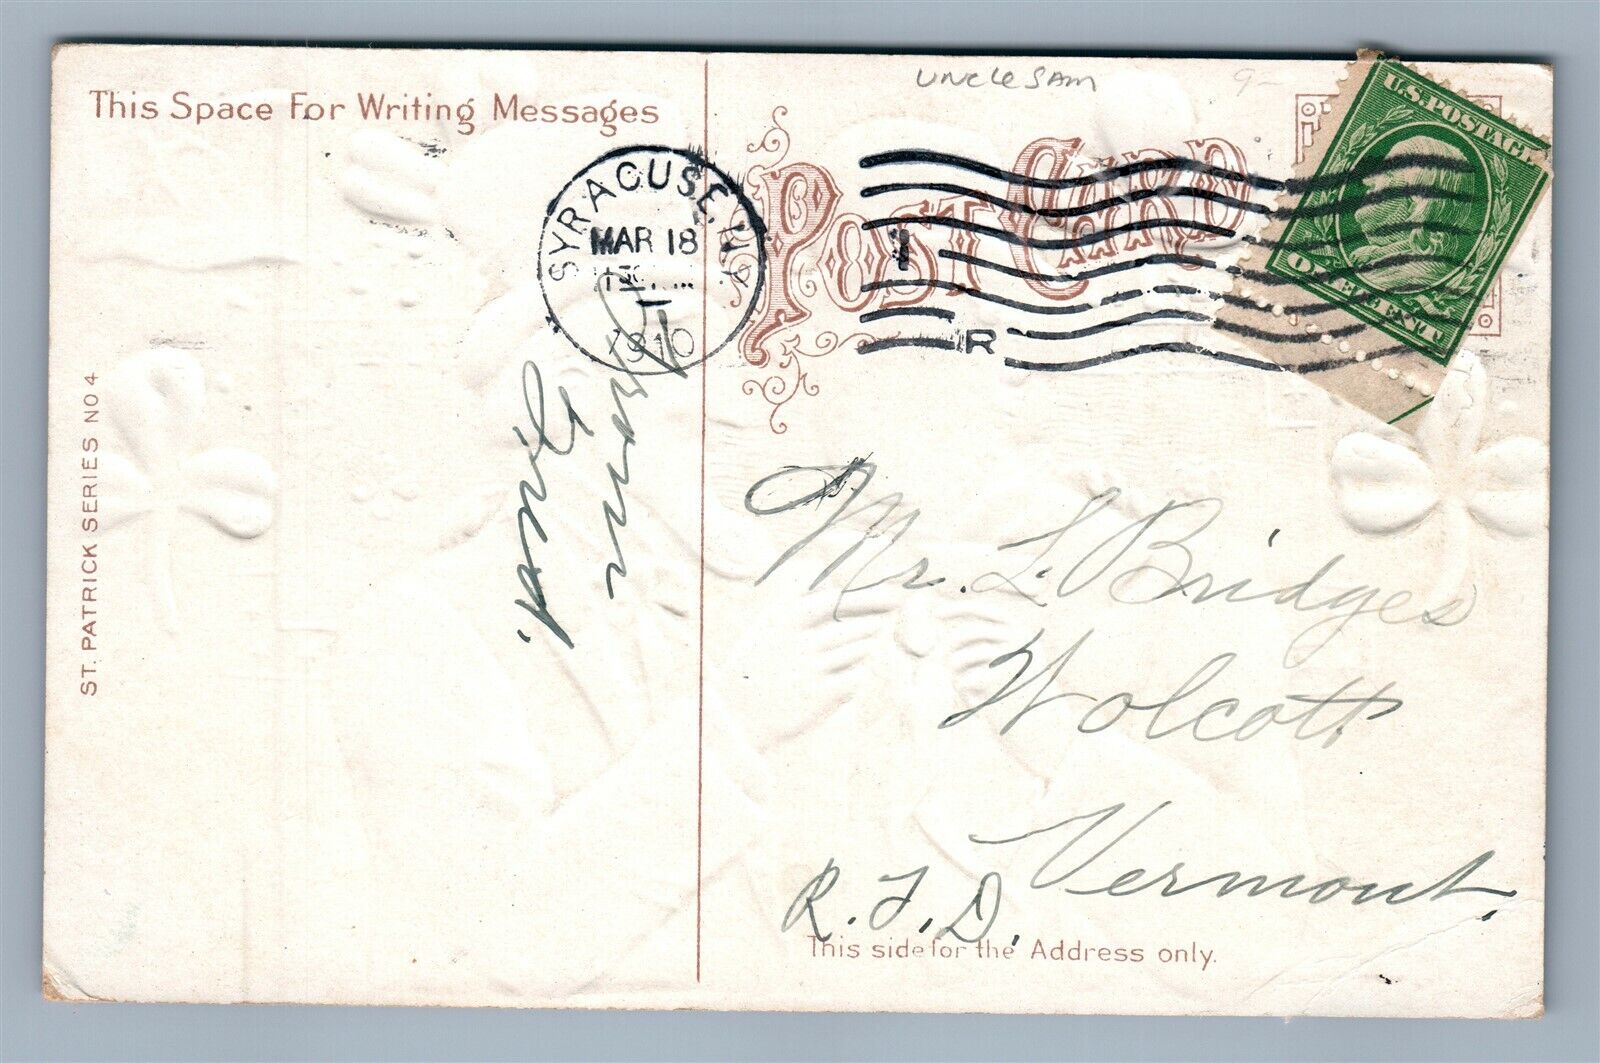 UNCLE SAM
9-
This Space For Writing Messages
POST CARD
U.S. POSTAGE
ONE CENT
SYRACUSE, N.Y.
MAR 18
1910
R
ST. PATRICK SERIES NO 4
Mr. L. Bridges
Wolcott
Vermont.
R.F.D.
This side for the Address only.